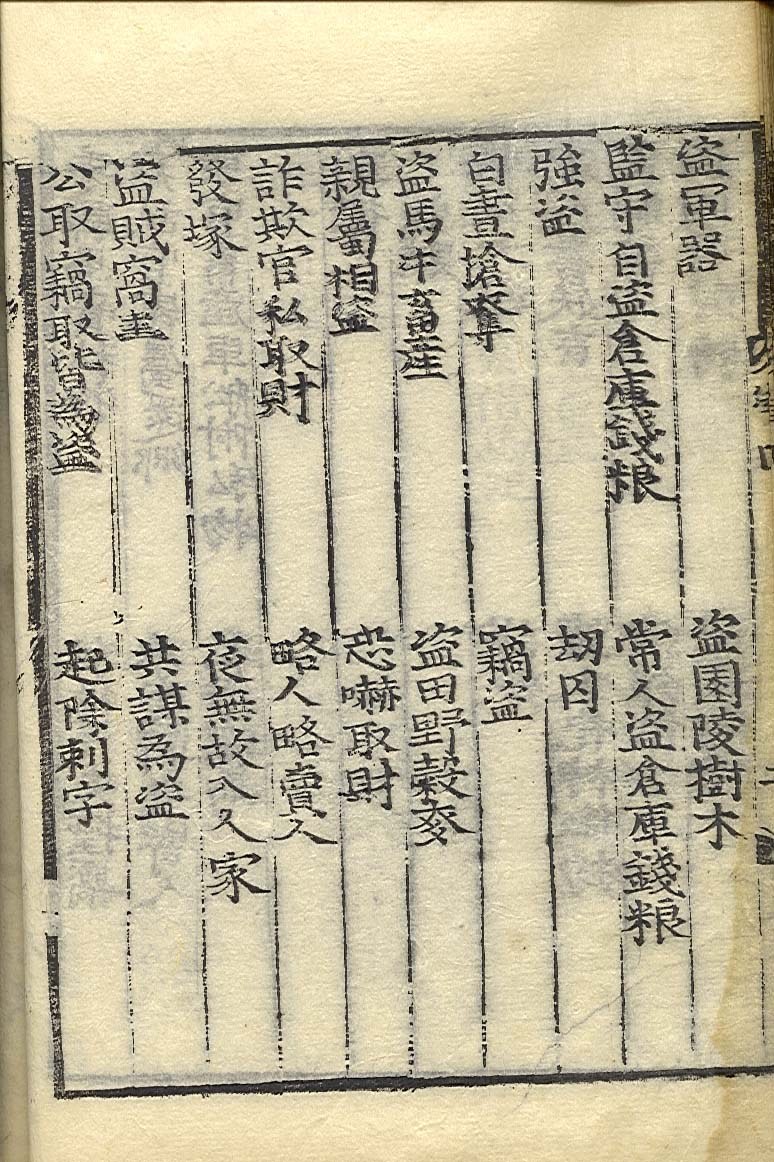 盜軍器 盜園陵樹木
監守自盜倉庫錢粮 常人盜倉庫錢粮
強盜 劫囚
白晝搶奪 竊盜
盜馬牛畜産 盜田野穀麥
親屬相盜 恐嚇取財
詐欺官私取財 略人略賣人
發塚 夜無故入人家
盜賊窩主 共謀為盜
公取竊取皆為盜 起除刺字